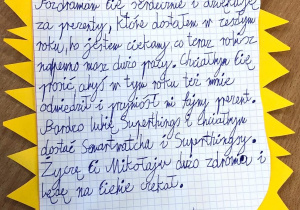 Pozdrawiam Cię serdecznie i dziękuję
za prezenty, które dostałem w zeszłym
roku, bo jestem ciekawy co teraz robisz
napewno masz dużo pracy. Chciałbym Cię
prosić abyś w tym roku też mnie
odwiedził i przyniósł mi fajny prezent.
Bardzo lubię Superthings i chciałbym
dostać Smartwatcha i Superthingsy.
Życzę Ci Mikołaju dużo zdrowia i
będę na Ciebie czekał.